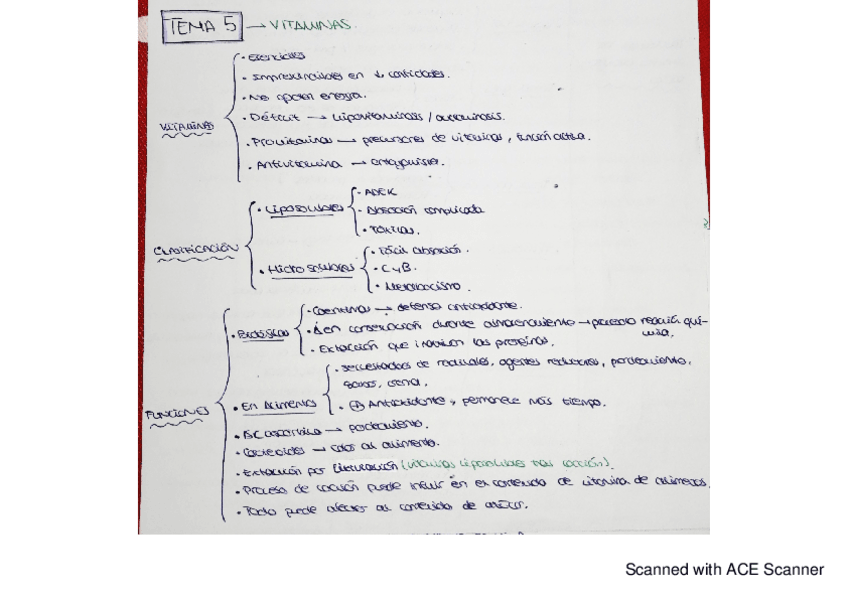 TEMA 5 → VITAMINAS
· Esenciales
· Imprescindibles en ↓ cantidades.
· No aportan energía.
VITAMINAS
· Déficit → Hipovitaminosis / avitaminosis.
· Provitamina → precursores de vitaminas, función activa.
· Antivitamina → antagonista.
CLASIFICACIÓN
· Liposolubles
- ADEK
- Absorción complicada
· Tóxicas.
· Hidrosolubles
· Fácil absorción.
· C y B.
· Metabolismo.
FUNCIONES
· Biológicas
· Coenzimas → defensa antioxidante.
· en conservación durante almacenamiento → pardeo reacción quí-
mica.
· Extracción que las proteínas.
· En Alimentos
· Secuestradores de radicales, agentes reductores, pardeamiento,
· ⊕ Antioxidante, permanece más tiempo.
· ascórbico → pardeamiento.
· Carotenoides → color al alimento.
· Extracción por (vitaminas liposolubles tras cocción).
· Proceso de cocción puede influir en el contenido de vitamina de alimentos.
· Todo puede afectar al contenido de
Scanned with ACE Scanner